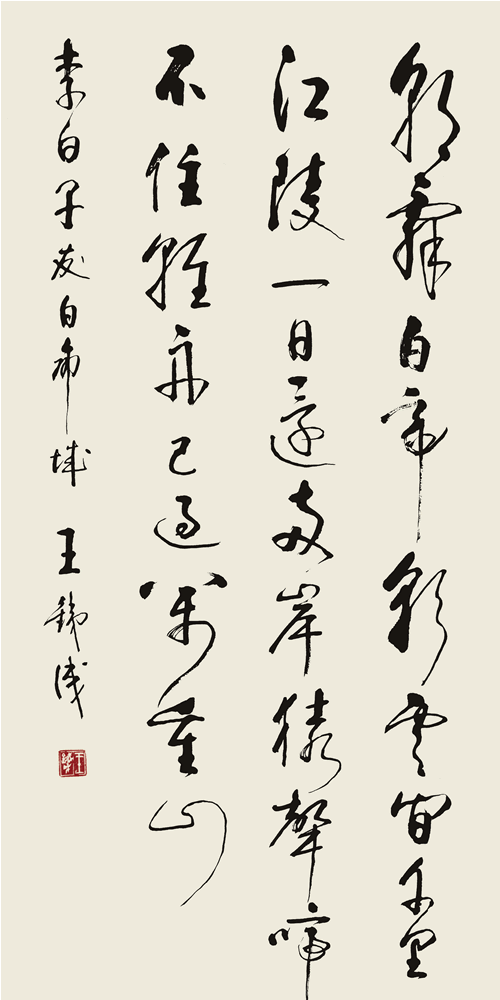 朝辞白帝彩云间千里
江陵一日还两岸猿声啼
不住轻舟已过万重山
李白早发白帝城 王